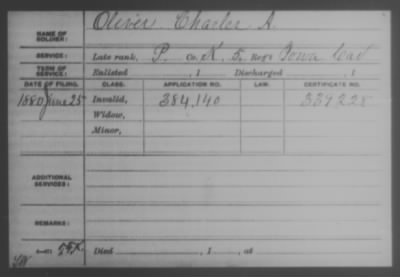 NAME OF SOLDIER: Oliver Charles A.
SERVICE: Late rank, P. Co. K, 5 Reg't Iowa Cav
TERM OF SERVICE: Enlisted , 1 Discharged , 1
DATE OF FILING. CLASS. APPLICATION NO. LAW. CERTIFICATE NO.
1880 June 25 Invalid, 384,140 339228
Widow,
Minor,
ADDITIONAL SERVICES:
REMARKS:
Died , 1 , at